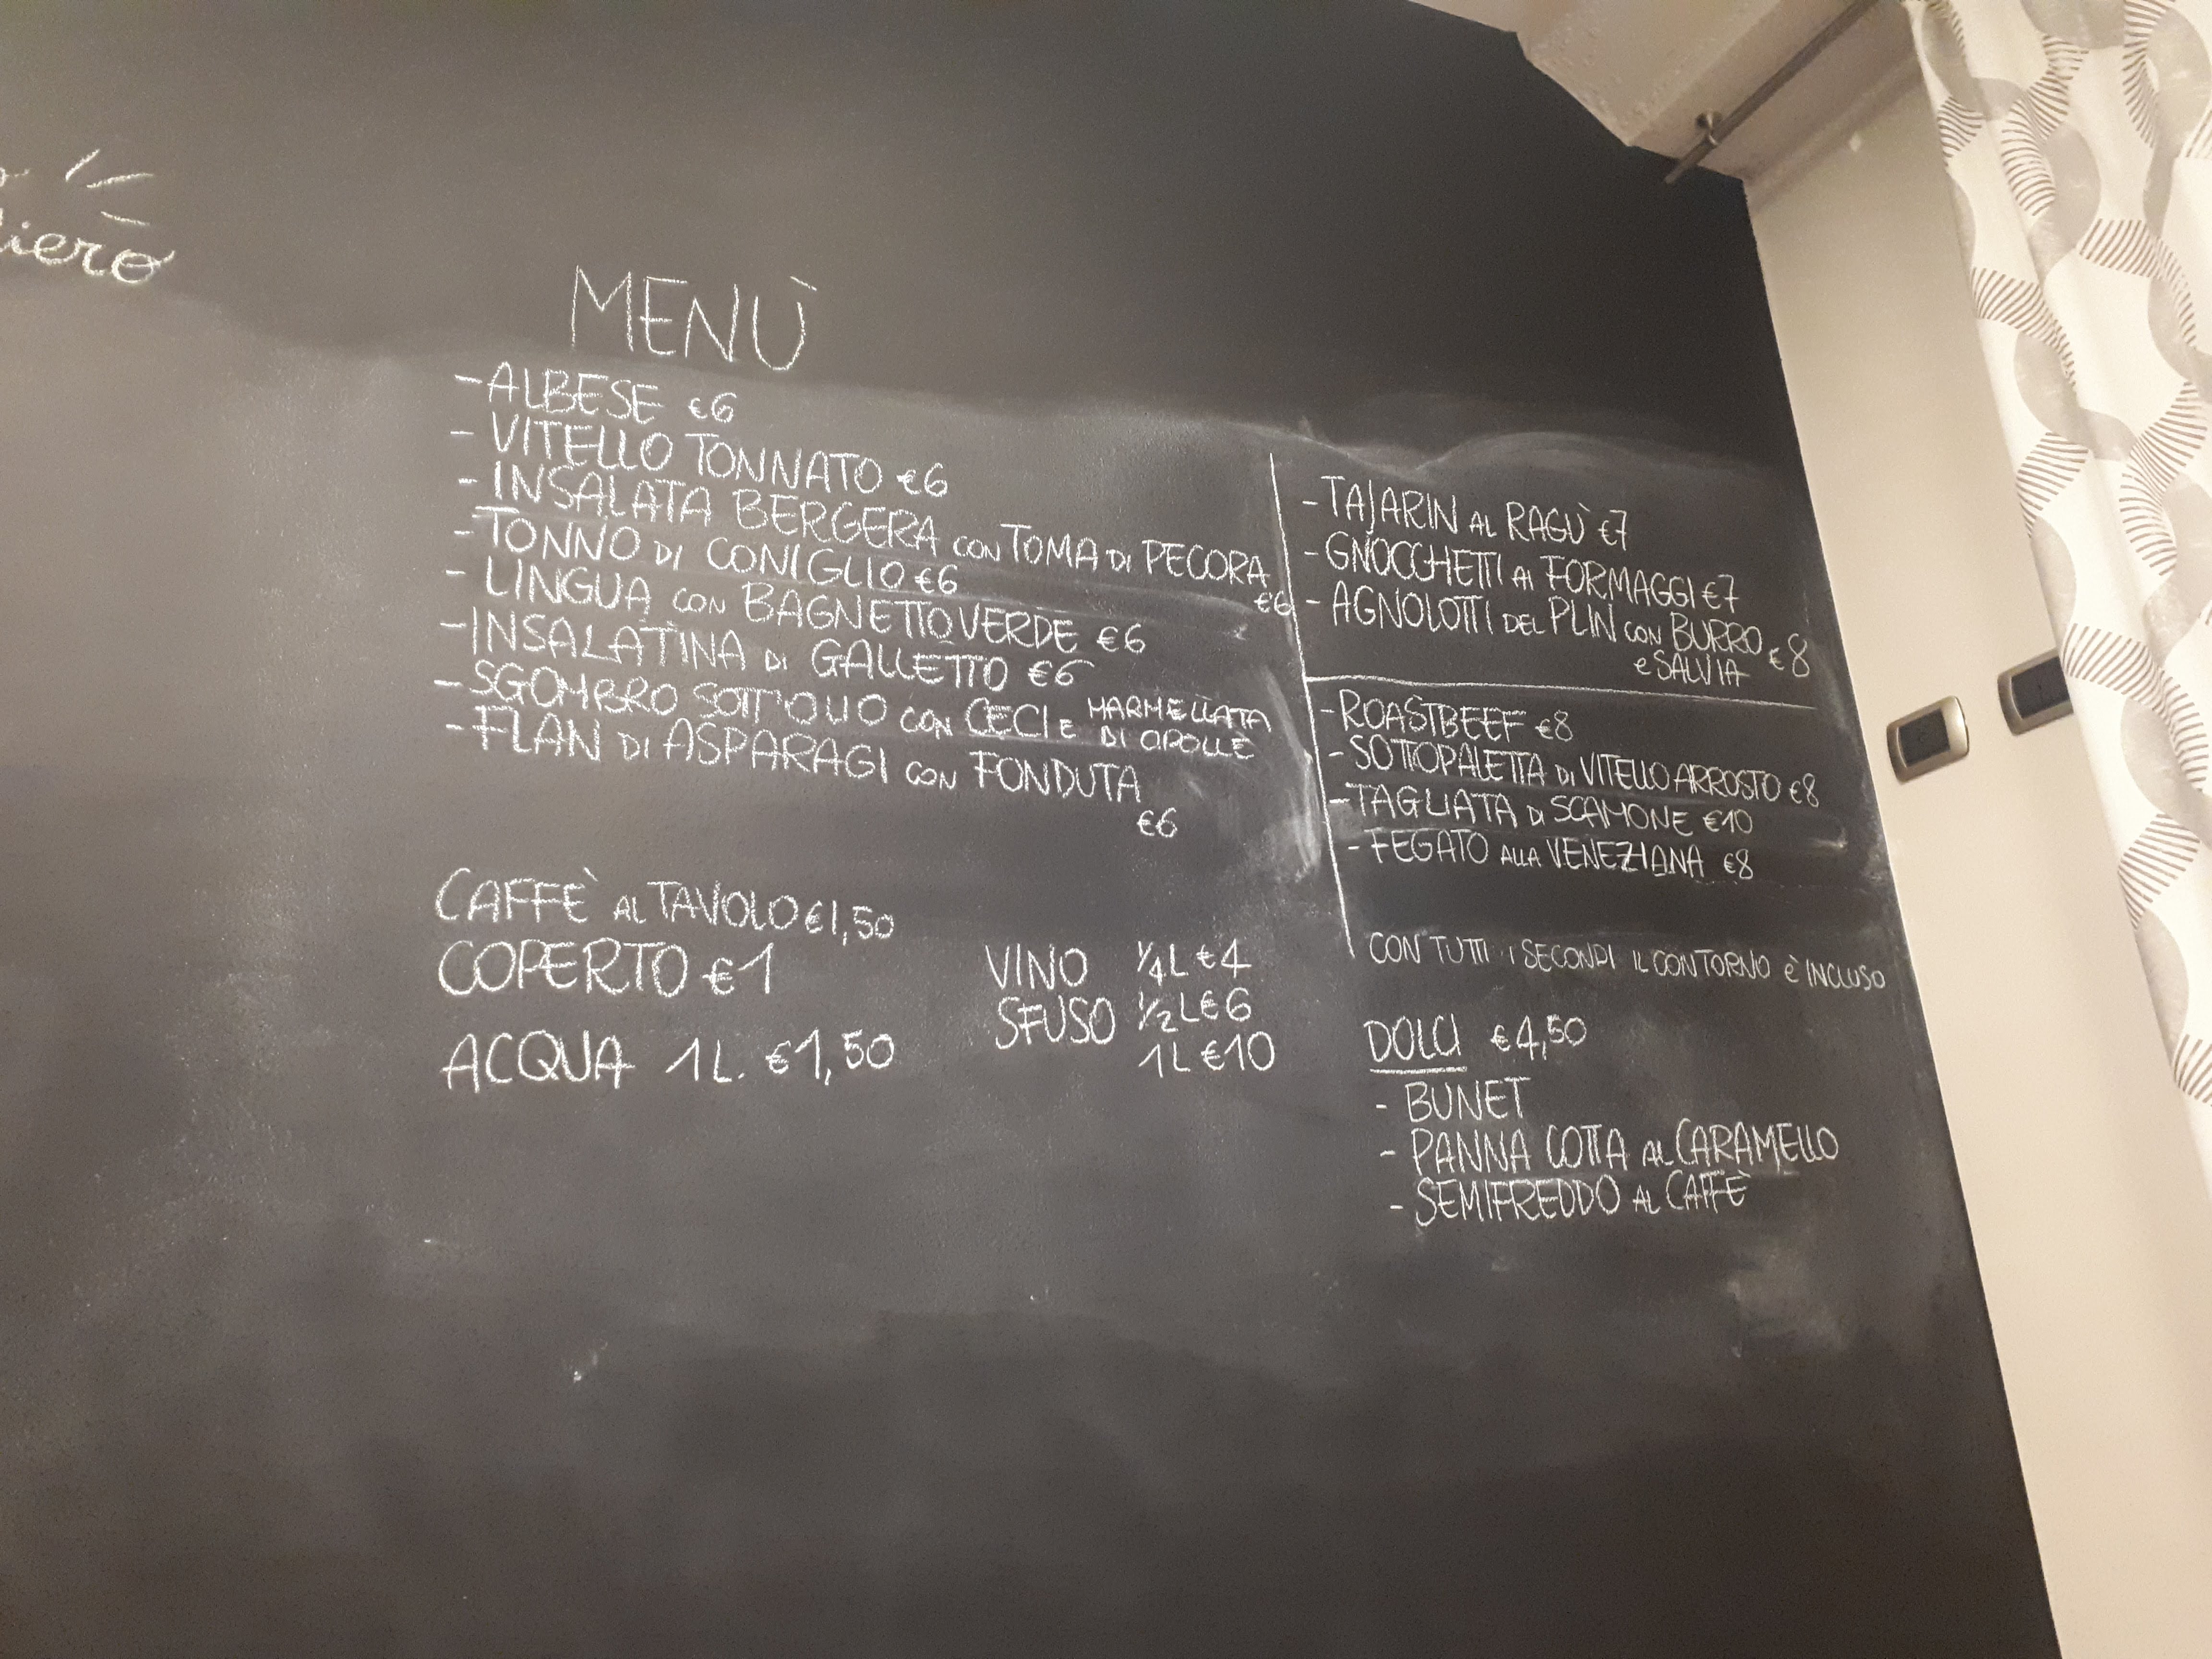 liero
MENÙ
- ALBESE €6
- VITELLO TONNATO €6
- INSALATA BERGERA CON TOMA DI PECORA
€6
- TONNO DI CONIGLIO €6
- LINGUA CON BAGNETTO VERDE €6
- INSALATINA DI GALLETTO €6
- SGOMBRO SOTT'OLIO CON CECI E MARMELLATA
DI CIPOLLE
- FLAN DI ASPARAGI CON FONDUTA
€6
CAFFÈ AL TAVOLO €1,50
COPERTO €1
ACQUA 1L. €1,50
VINO
SFUSO
1/4 L €4
1/2 L €6
1L €10
- TAJARIN AL RAGÙ €7
- GNOCCHETTI AI FORMAGGI €7
- AGNOLOTTI DEL PLIN CON BURRO
e SALVIA €8
- ROASTBEEF €8
- SOTTOPALETTA DI VITELLO ARROSTO €8
- TAGLIATA DI SCAMONE €10
- FEGATO ALLA VENEZIANA €8
CON TUTTI I SECONDI IL CONTORNO è INCLUSO
DOLCI €4,50
- BUNET
- PANNA COTTA AL CARAMELLO
- SEMIFREDDO AL CAFFÈ